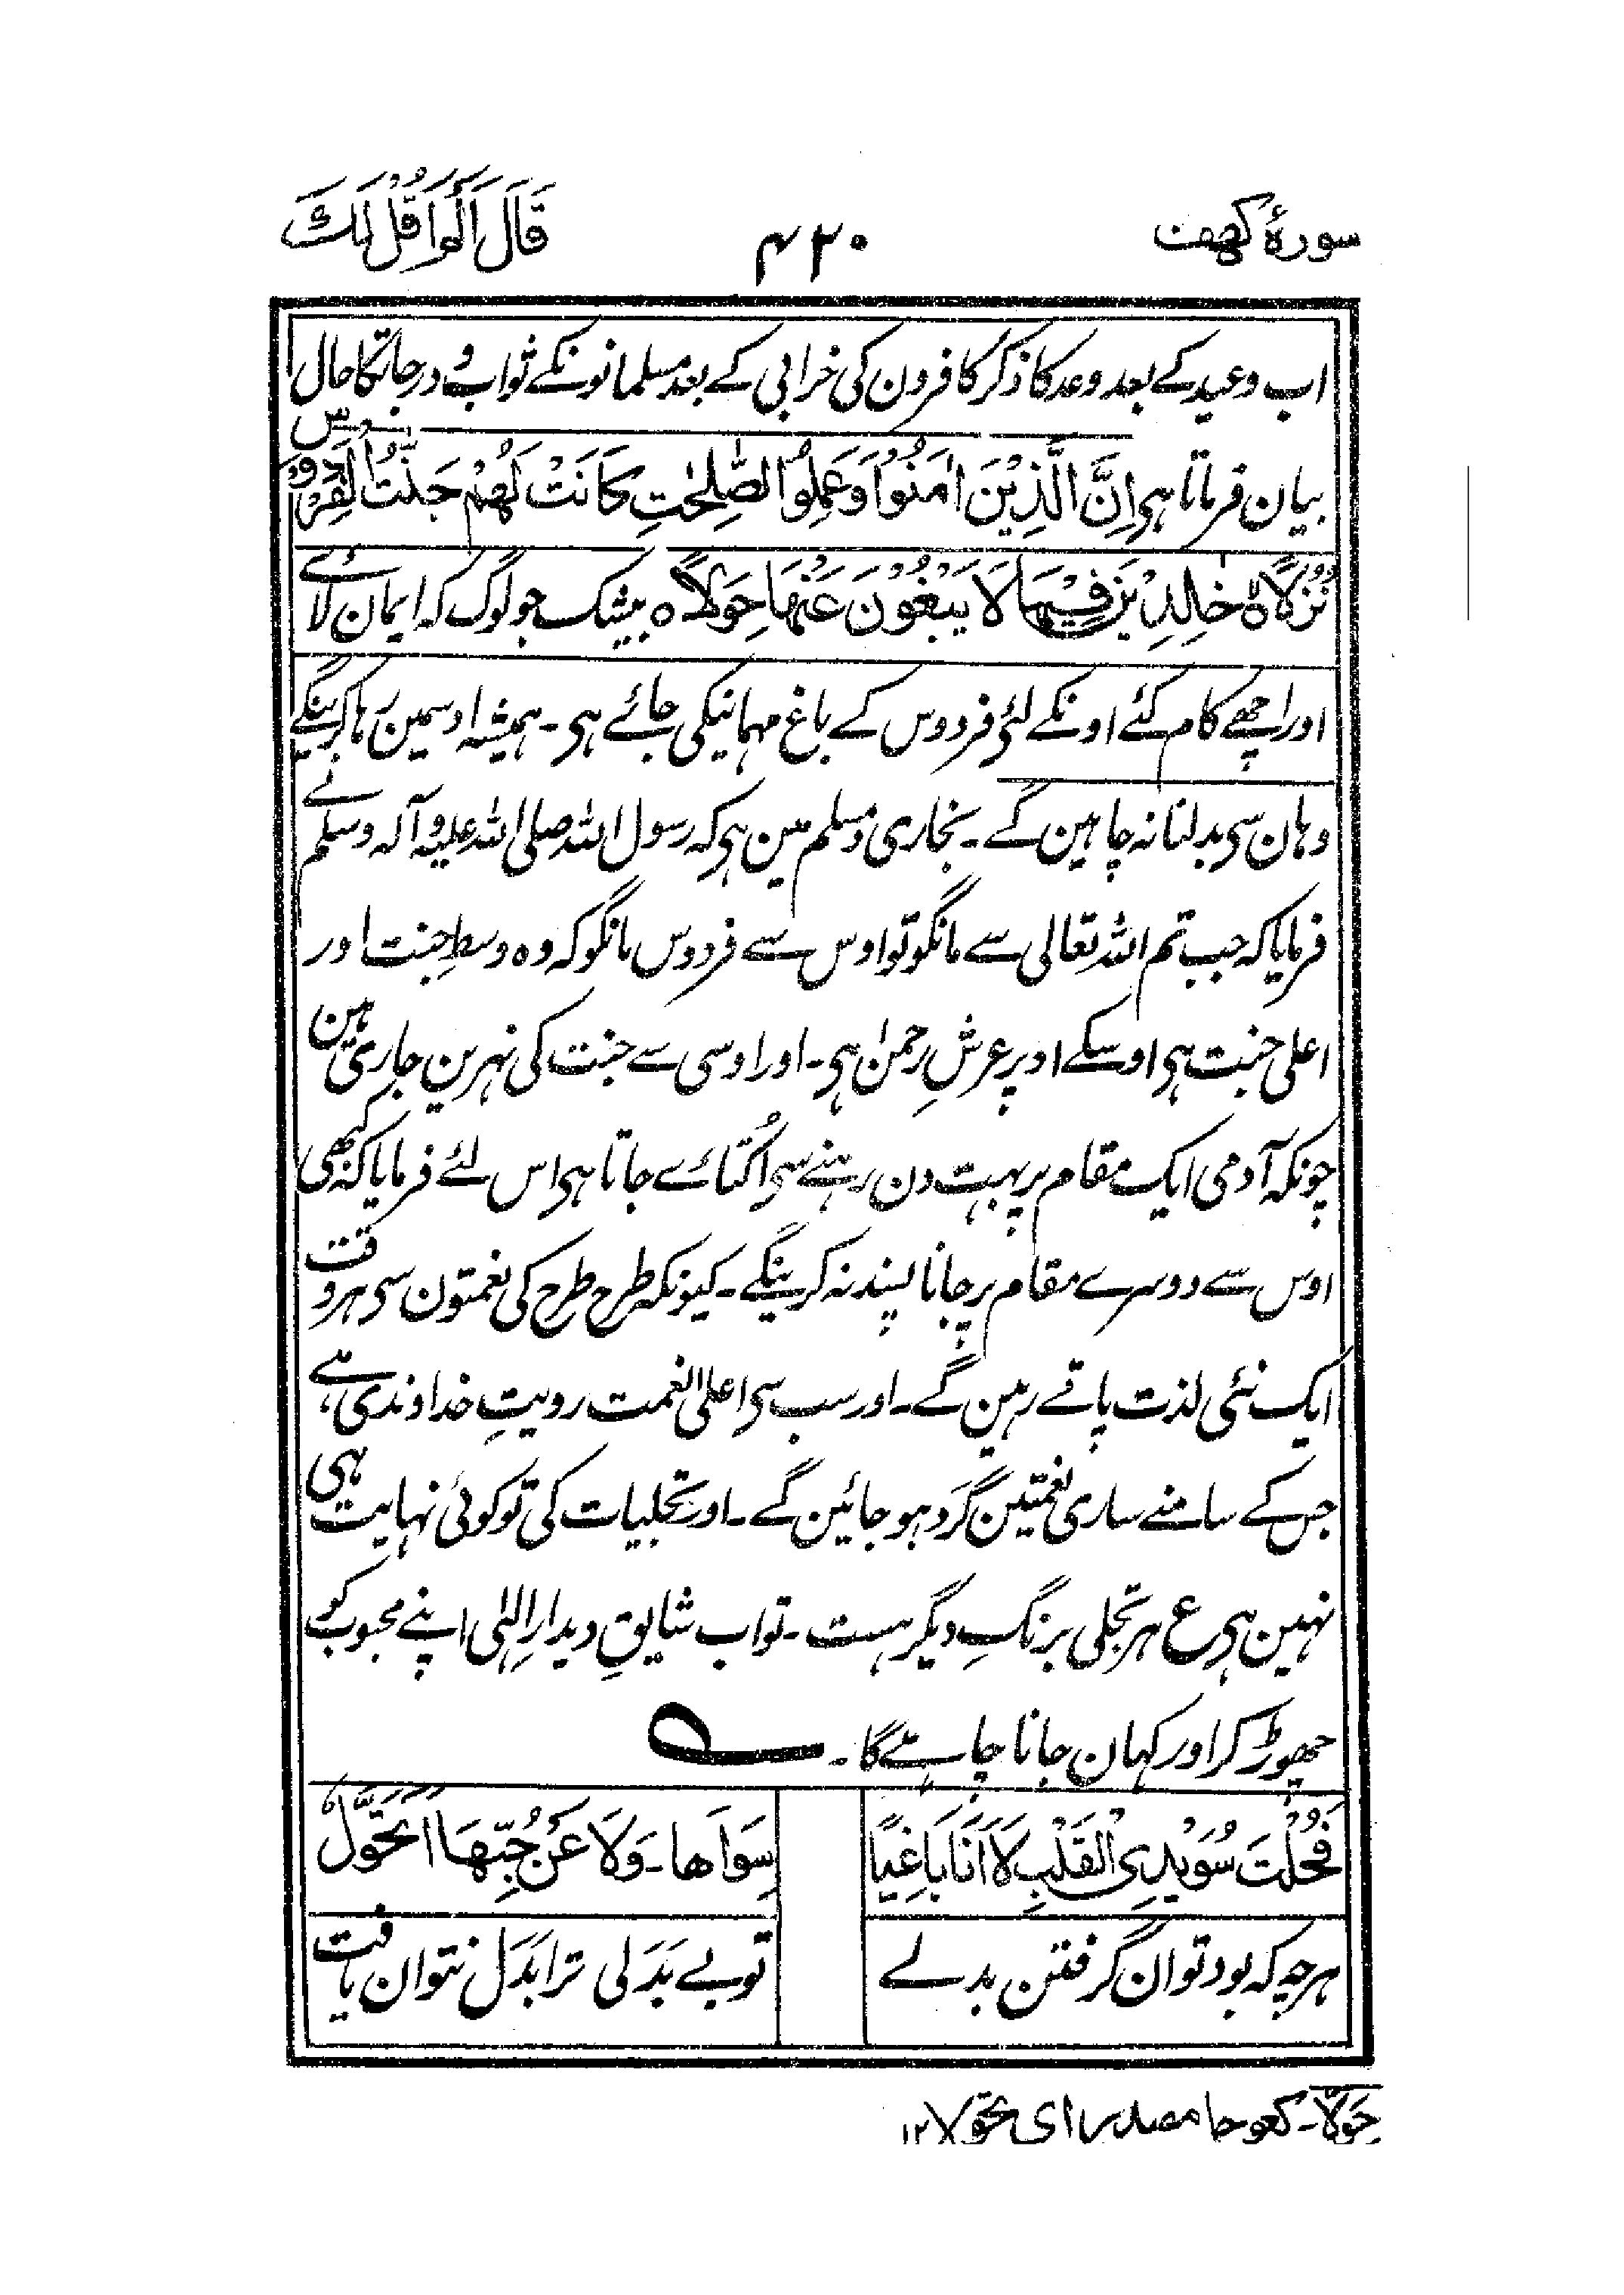 سورۂ کہف
۴۲۰
قَالَ اَلَمْ اَقُلْ لَّكَ
اب وعید کے بعد وعد کا ذکر کافرون کی خرابی کے بعد مسلمانونکے ثواب و درجاتکا حال
بیان فرماتا ہی اِنَّ الَّذِیْنَ اٰمَنُوْا وَعَمِلُوا الصّٰلِحٰتِ كَانَتْ لَهُمْ جَنّٰتُ الْفِرْدَوْسِ
نُزُلًا ۙ خٰلِدِیْنَ فِیْهَا لَا یَبْغُوْنَ عَنْهَا حِوَلًا ہ بیشک جو لوگ کہ ایمان لائے
اور اچھے کام کئے اونکے لئی فردوس کے باغ مہمانیکی جائے ہی ۔ ہمیشہ اوسمین رہا کرینگے
وہان سی بدلنا نہ چاہین گے ۔ بخاری و مسلم مین ہی کہ رسول اللہ صلی اللہ علیہ وآلہ وسلم نے
فرمایا کہ جب تم اللہ تعالی سے مانگو تو اوس سے فردوس مانگو کہ وہ وسطِ جنت اور
اعلی جنت ہی اوسکے اوپر عرشِ رحمٰن ہی ۔ اور اوسی سے جنت کی نہرین جاری ہین
چونکہ آدمی ایک مقام پر بہت دن رہنے سی اُکتائے جاتا ہی اس لئے فرمایا کہ کبھی
اوس سے دوسرے مقام پر جانا پسند نہ کرینگے ۔ کیونکہ طرح طرح کی نعمتون سی ہر وقت
ایک نئی لذت پاتے رہین گے ۔ اور سب سی اعلیٰ نعمت رویتِ خداوندی ہے،
جس کے سامنے ساری نعمتین گرد ہو جائین گے ۔ اور تجلیات کی تو کوئی نہایت ہی
نہین ہی ع ہر تجلی برنگِ دیگر ہست ۔ تو اب شایقِ دیدارِ الٰہی اپنے محبوب کو
چھوڑ کر اور کہان جانا چاہے گا ۔
فَحُلْتَ سُوَیْدِی الْقَلْبِ لَا اَنَا بَاغِیًا
سِوَاھا ۔ وَلَا عَنْ حُبِّهَا اَتَحَوَّلُ
ہر چیہ کہ بود توان گرفتن بدلے
تو بے بَدَلی ترا بَدَل نتوان یافت
حِوَلًا ۔ کعوجا مصدر ای تحولا ۱۲